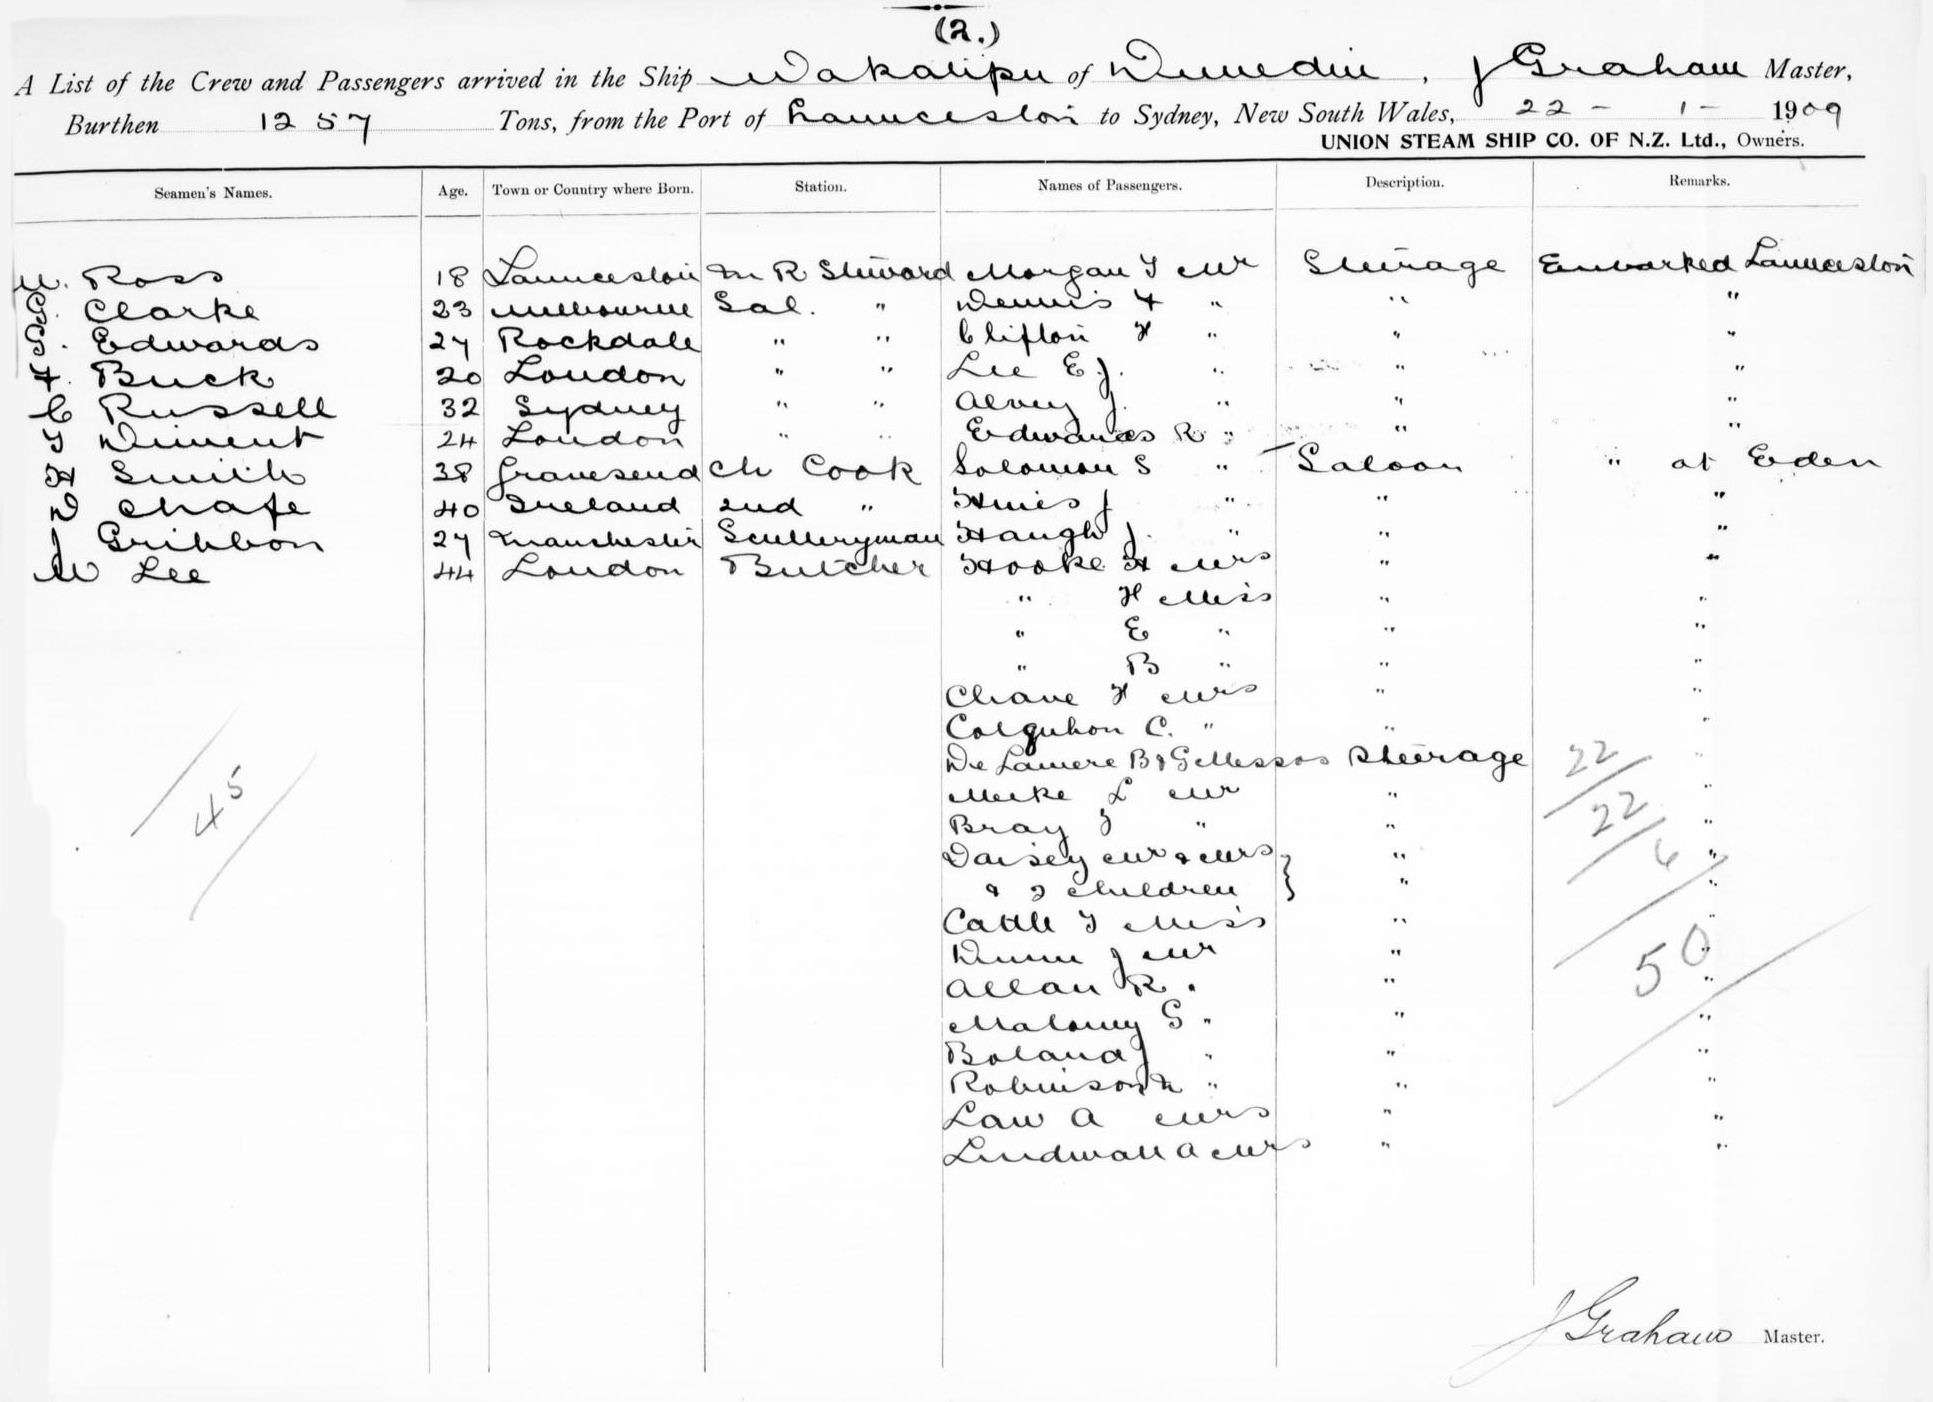 (2.)
A List of the Crew and Passengers arrived in the Ship Wakatipu of Dunedin, J Graham Master,
Burthen 1257 Tons, from the Port of Launceston to Sydney, New South Wales, 22 - 1 - 1909
UNION STEAM SHIP CO. OF N.Z. Ltd., Owners.
Seamen's Names. Age. Town or Country where Born. Station. Names of Passengers. Description. Remarks.
W. Ross 18 Launceston M R Steward Morgan T Mr Steerage Embarked Launceston
Clarke 23 Melbourne Sal. " Dennis F " " "
Edwards 27 Rockdale " " Clifton H " " "
F. Buck 20 London " " Lee E J. " " "
C Russell 32 Sydney " " Alvey J. " " "
T Diment 24 London " " Edwards R " " "
H Smith 38 Gravesend Ch Cook Solomon S " Saloon " at Eden
D Chafe 40 Ireland 2nd " Hines J " " "
J Gribbon 27 Manchester Sculleryman Haugh J. " " "
W Lee 44 London Butcher Hooke H Mrs " "
" H Miss " "
" E " " "
" B " " "
Chane H Mrs " "
Colquhon C. " " "
De Lamere B & G Messrs Steerage "
22
Meike L Mr " "
22
Bray J " " "
45
Daisey Mr & Mrs } " "
6
& 2 children " "
Cattle T Miss " "
Dunn J Mr " "
50
Allan R " " "
Maloney G " " "
Boland J " " "
Robinson M " " "
Law A Mrs " "
Lindwall A Mrs " "
J Graham Master.